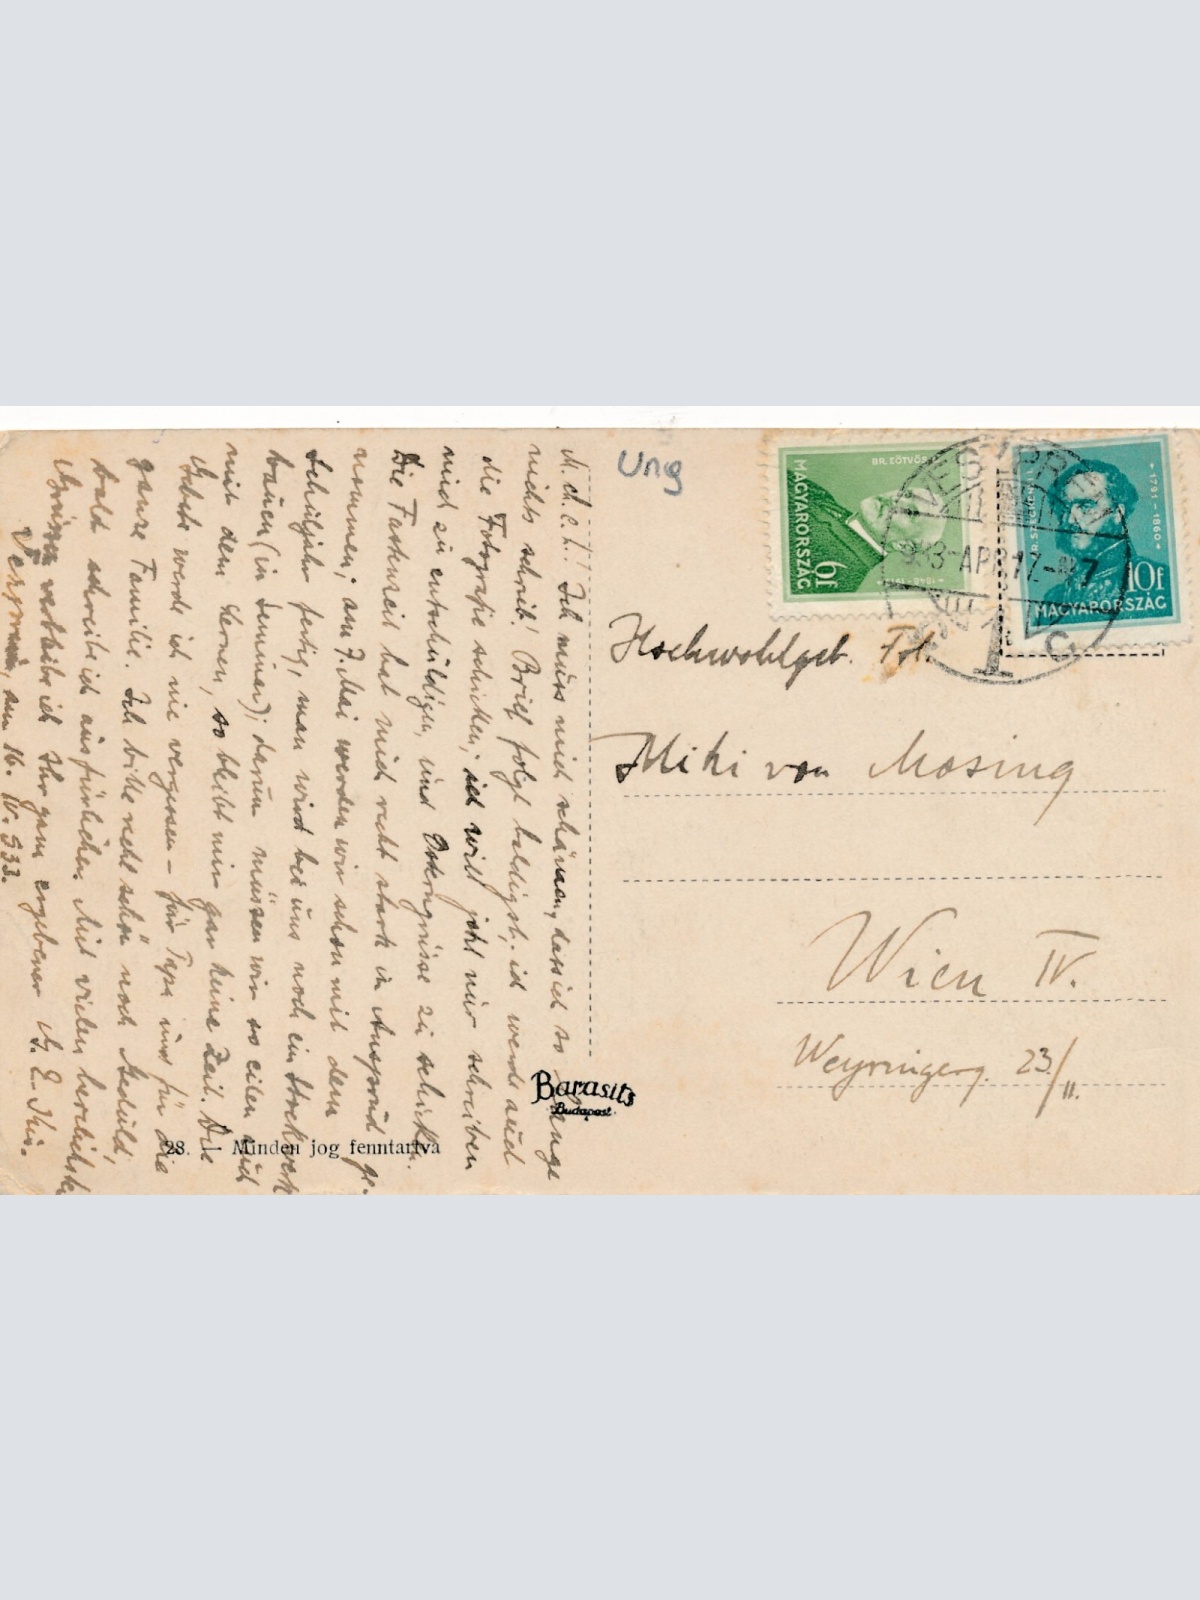 M. d. e. h.! Ich muss mich schämen, dass ich so lange
nichts schrieb! Brief folgt baldigst; ich werde auch
die Fotografie schicken; ich will jetzt nur schreiben
mich zu entschuldigen, und Ostergrüsse zu schicken.
Die Fastenzeit hat mich recht stark in Anspruch ge-
nommen; am 7. Mai werden wir schon mit dem
Schuljahr fertig, man wird bei uns noch ein Stockwerk
bauen (in Seminar); darum müssen wir so eilen auch
mit dem Lernen, so bleibt mir gar keine Zeit. Die
Gebete werde ich nie vergessen – für Papa und für die
ganze Familie. Ich bitte recht schön noch Geduld,
bald schreibe ich ausfürlicher. Mit vielen herzlichsten
Grüssen verbleibe ich Ihr ganz ergebener
am 16. IV. 933.
28. — Minden jog fenntartva
Barasits
Budapest
Ung
BR. EÖTVÖS
MAGYARORSZÁG
6f
1848 - 1919
GR. SZÉCHENYI
1791 - 1860
10f
MAGYARORSZÁG
VESZPRÉM
933 APR 17
Hochwohlgeb. Frl.
Miki von Mosing
Wien IV.
Weyringerg. 23/II.